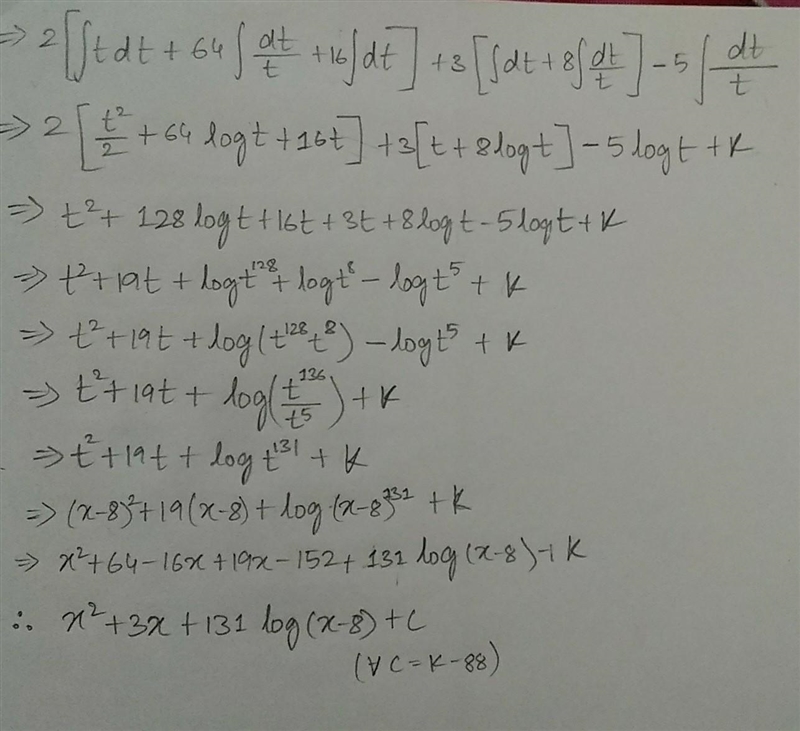 ⇒ 2[∫t dt + 64∫dt/t + 16∫dt] + 3[∫dt + 8∫dt/t] − 5∫dt/t
⇒ 2[t²/2 + 64 log t + 16t] + 3[t + 8 log t] − 5 log t + K
⇒ t² + 128 log t + 16t + 3t + 8 log t − 5 log t + K
⇒ t² + 19t + log t¹²⁸ + log t⁸ − log t⁵ + K
⇒ t² + 19t + log(t¹²⁸ t⁸) − log t⁵ + K
⇒ t² + 19t + log(t¹³⁶/t⁵) + K
⇒ t² + 19t + log t¹³¹ + K
⇒ (x−8)² + 19(x−8) + log (x−8)¹³¹ + K
⇒ x² + 64 − 16x + 19x − 152 + 131 log(x−8) + K
∴ x² + 3x + 131 log(x−8) + C
(∀ C = K − 88)